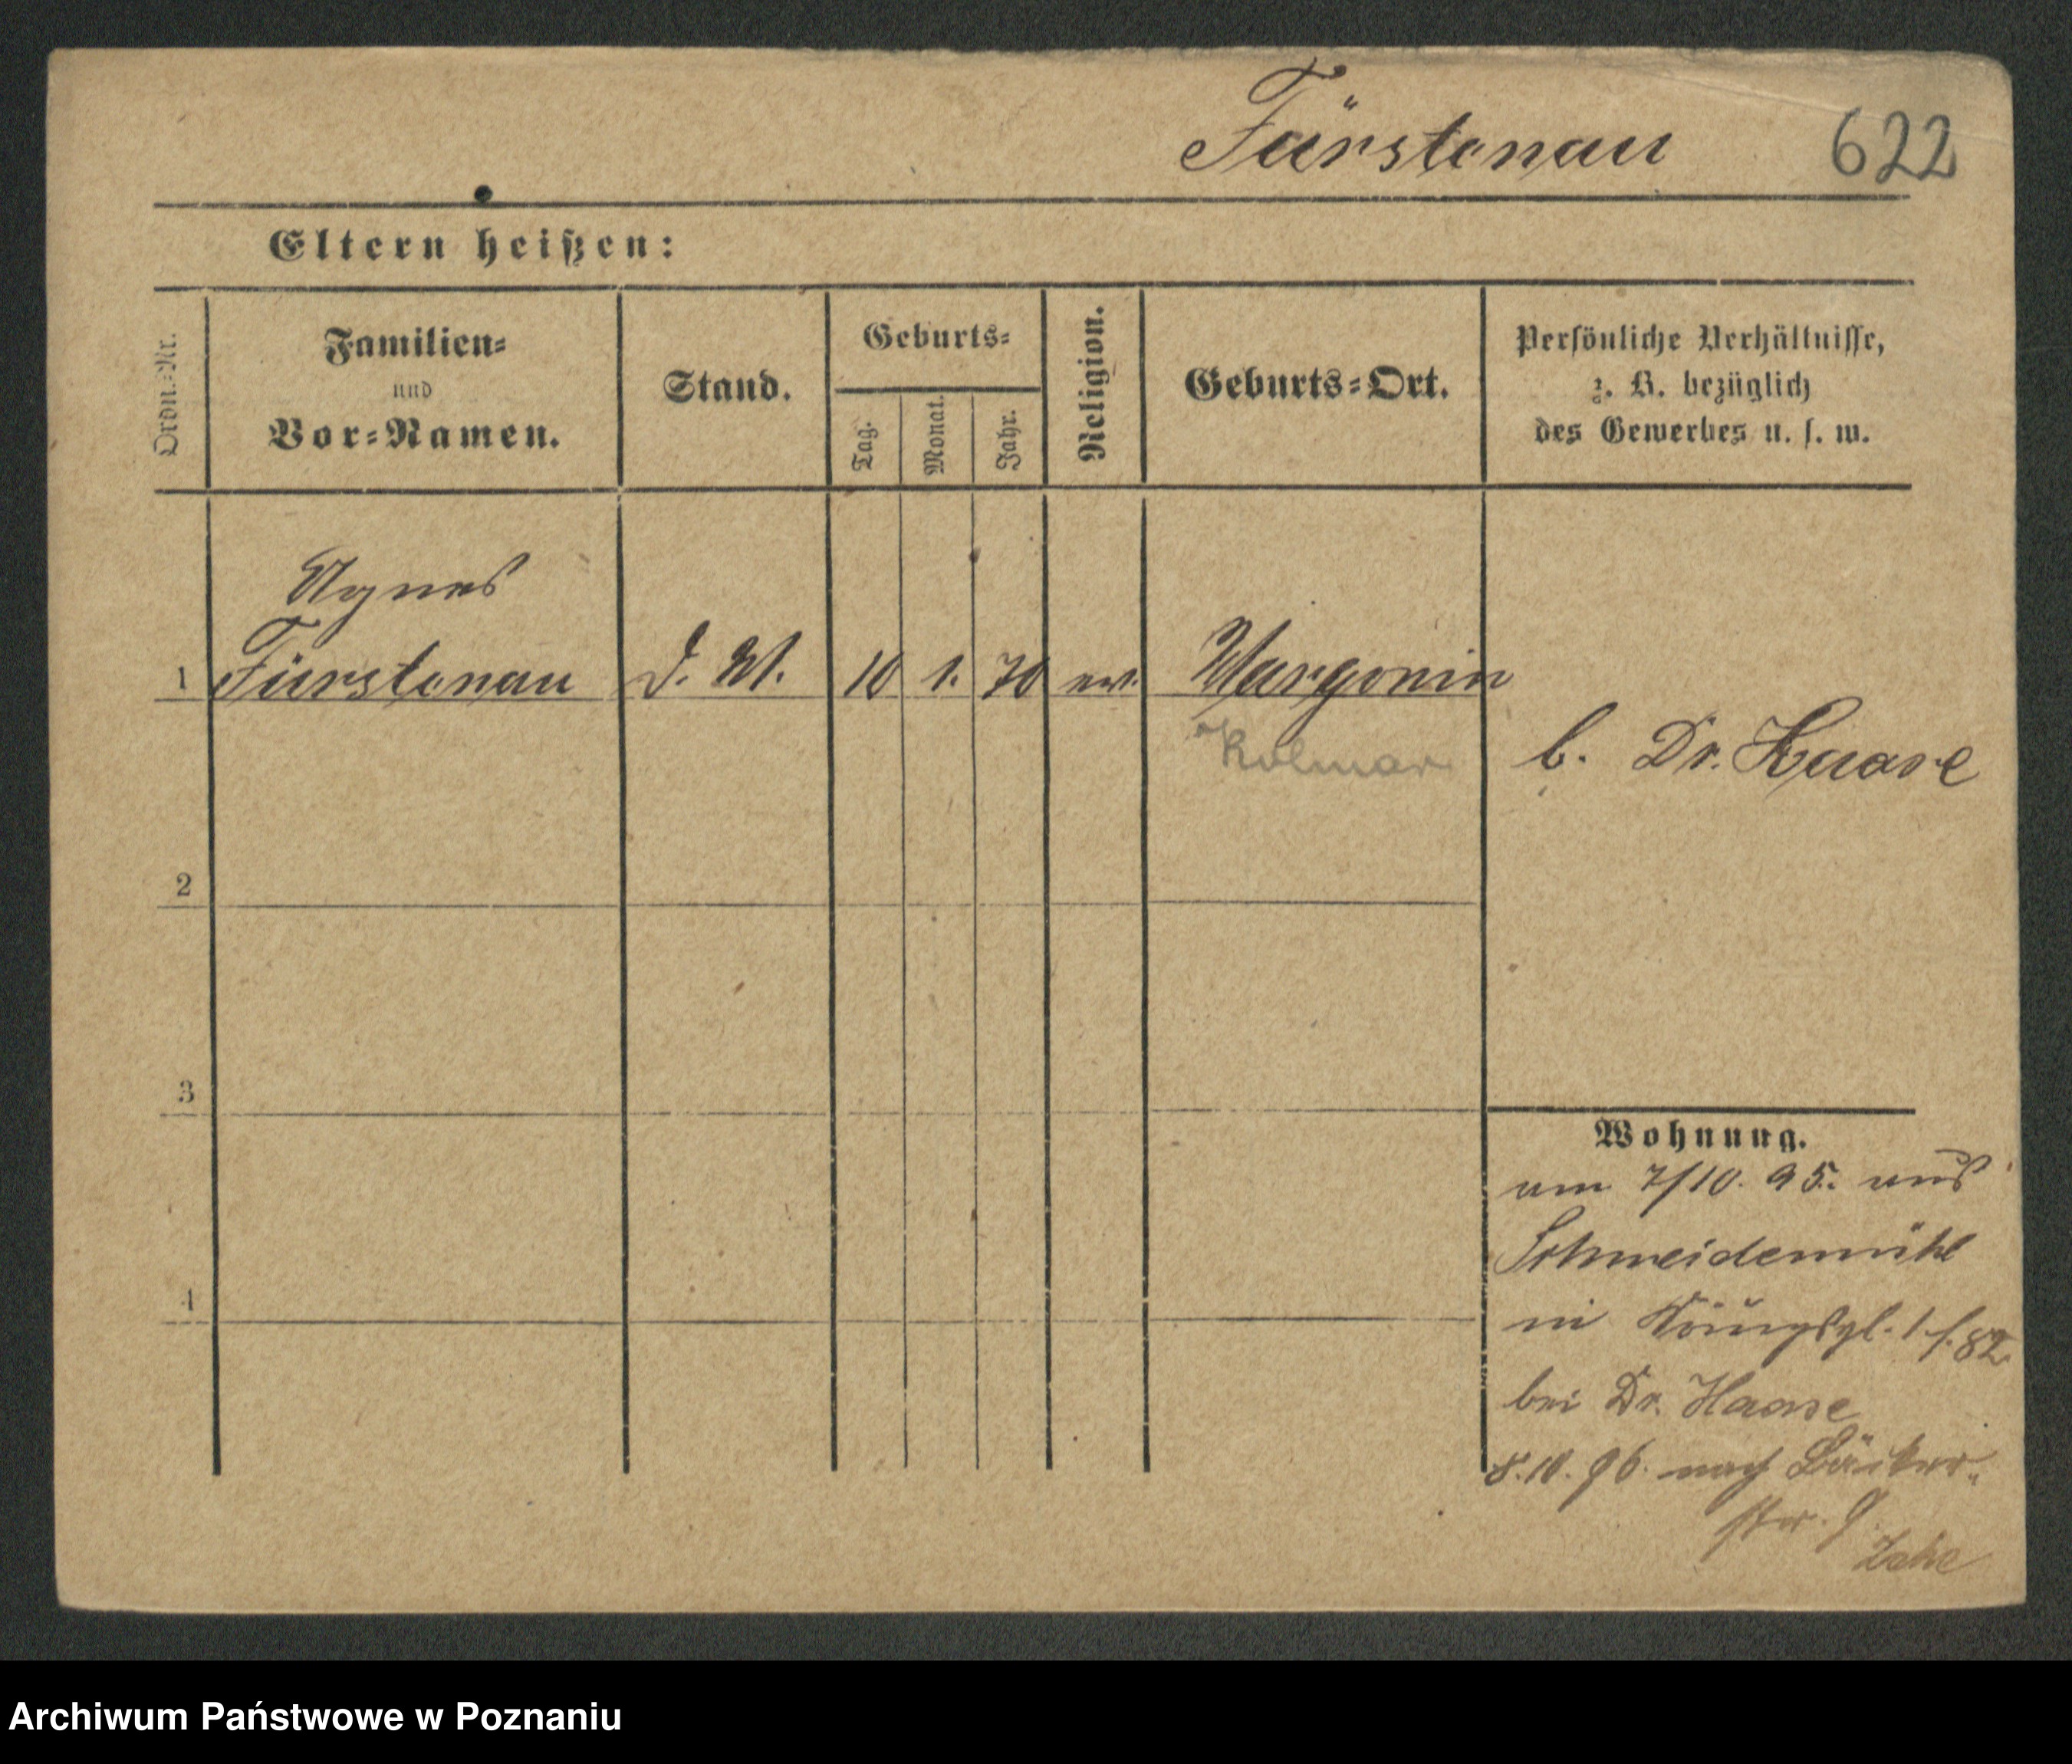 Fürstenau 622
Eltern heißen:
Ordn.-Nr.
Familien-
und
Vor-Namen.
Stand.
Geburts-
Tag.
Monat.
Jahr.
Religion.
Geburts-Ort.
Persönliche Verhältnisse,
z. B. bezüglich
des Gewerbes u. s. w.
Agnes
1 Fürstenau D. M. 10 1. 70 ev. Margonin
Kolmar
b. Dr. Haase
2
3
4
Wohnung.
am 7/10. 95. aus
Schneidemühl
in Königspl. 1 f. 82
bei Dr. Haase
8.10.96. nach Bäcker-
str. 9
Archiwum Państwowe w Poznaniu